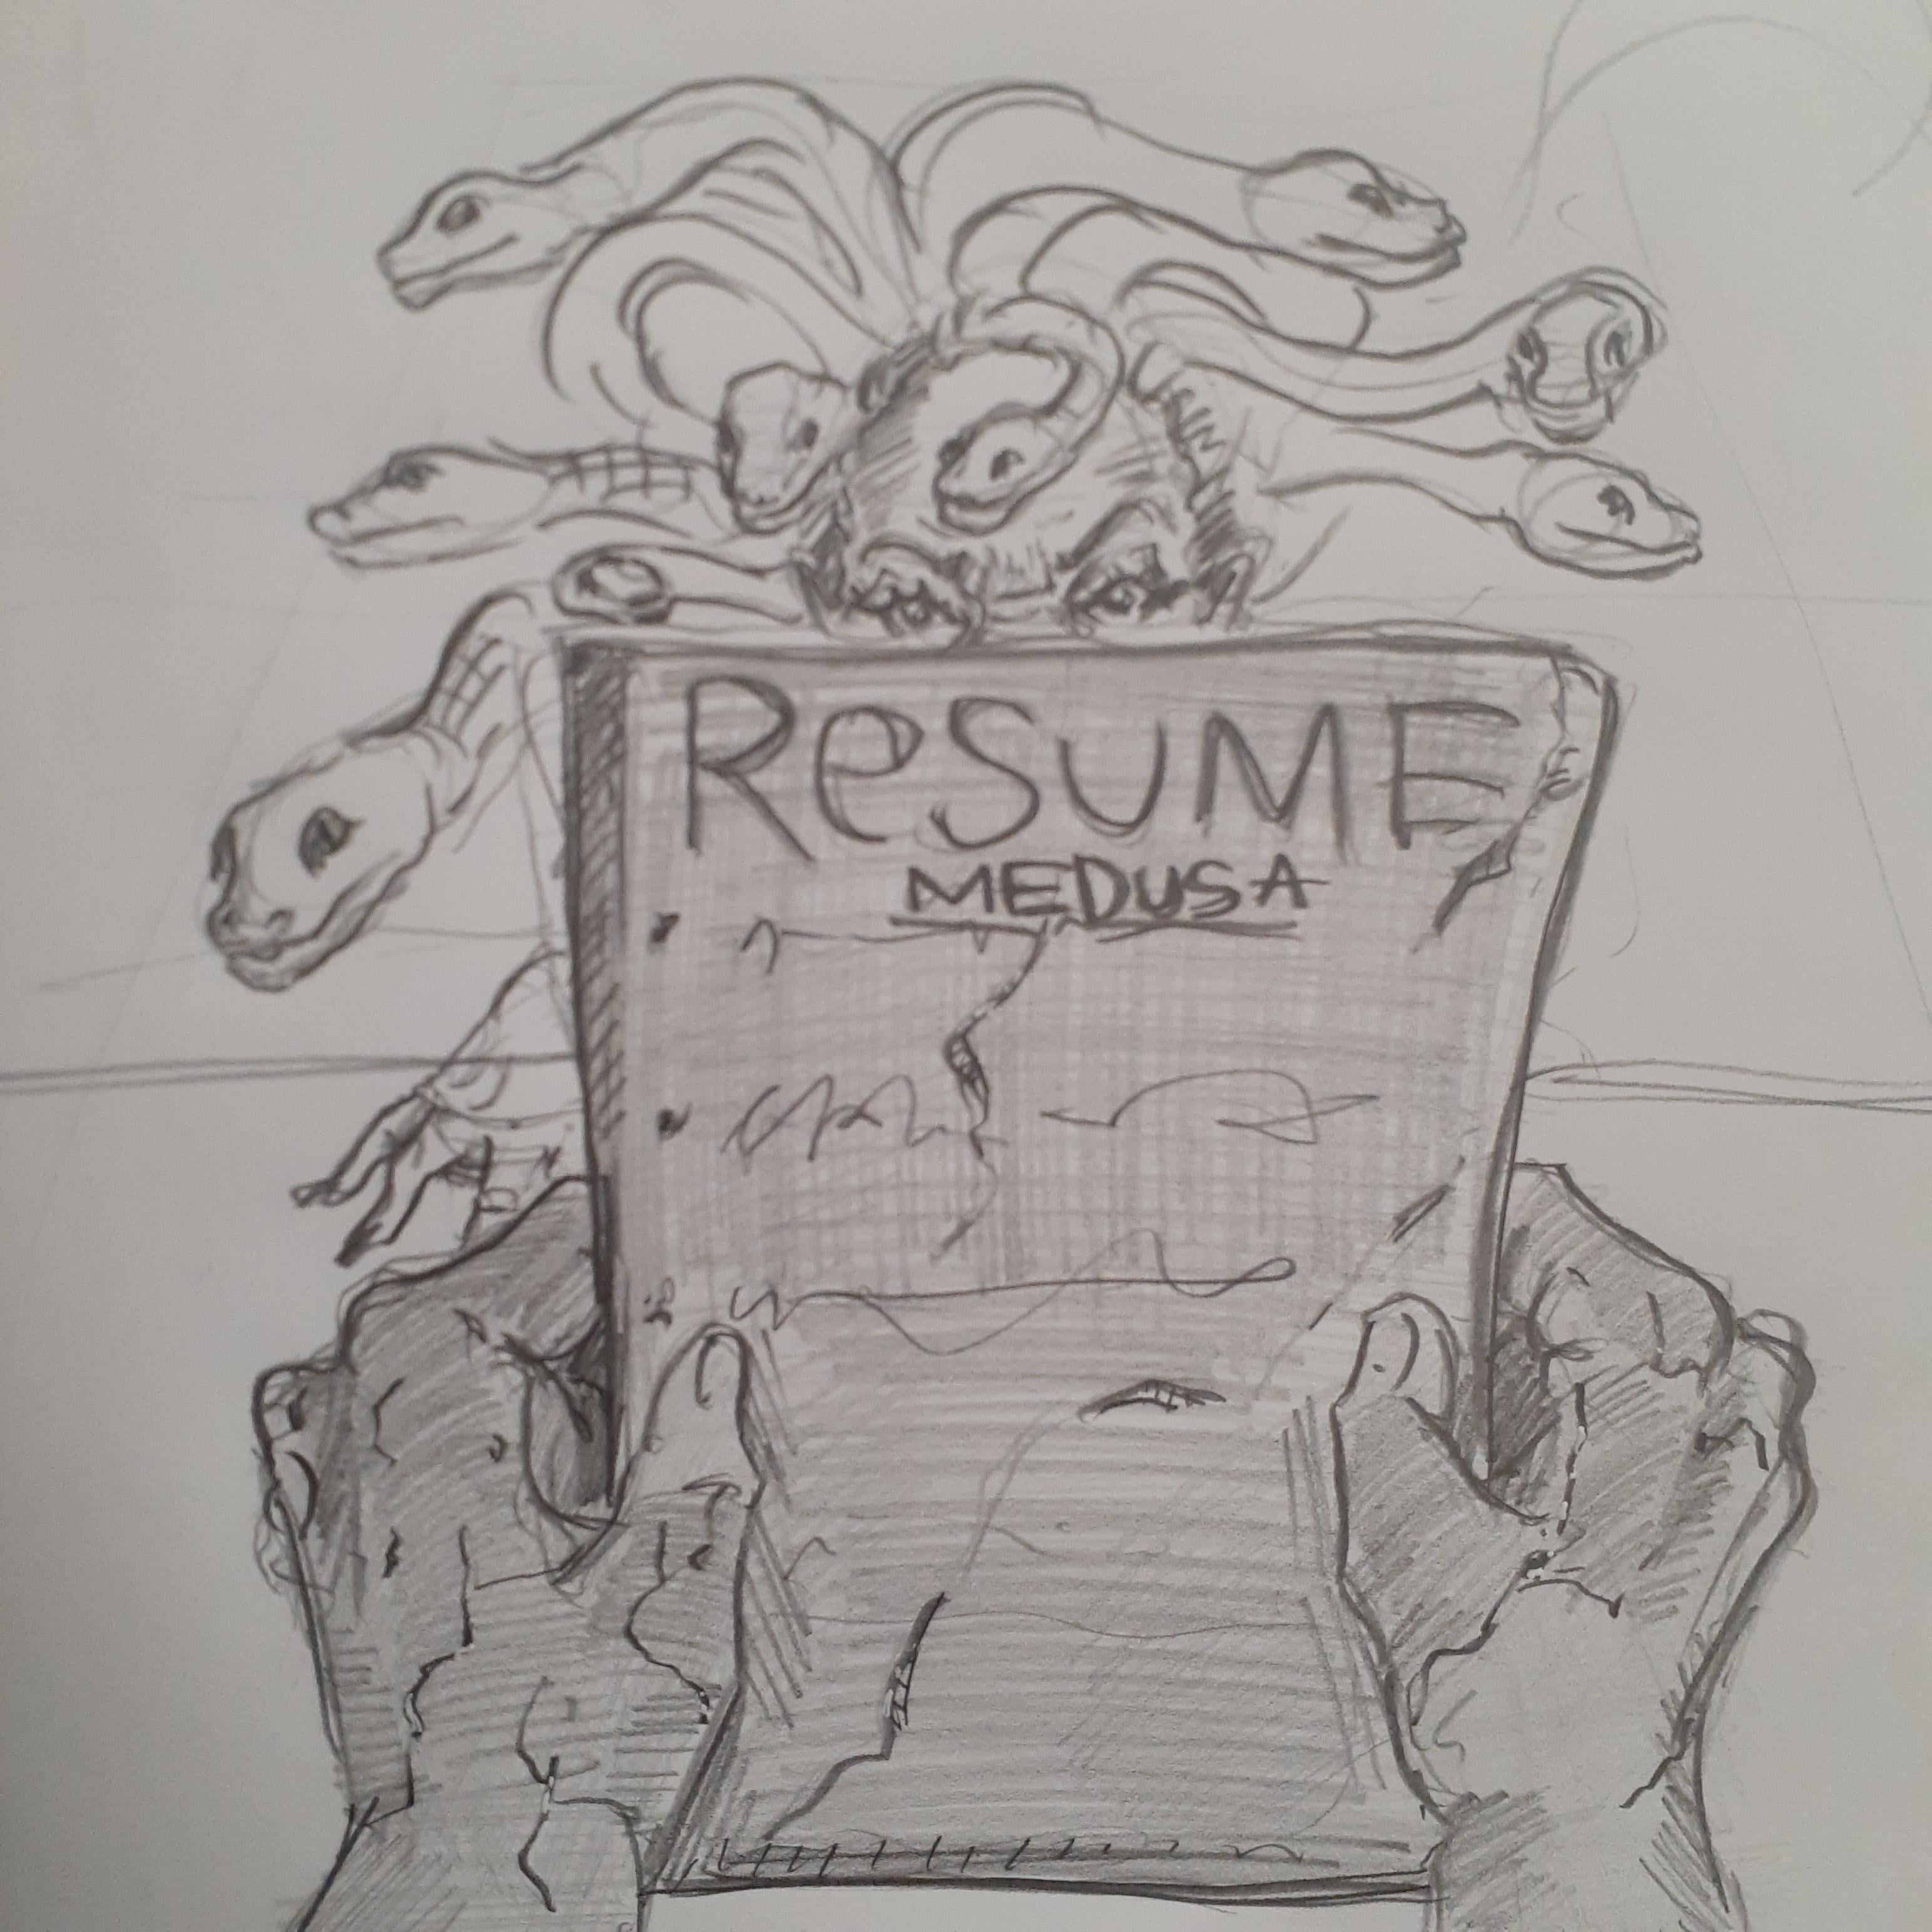 ReSUME
MEDUSA